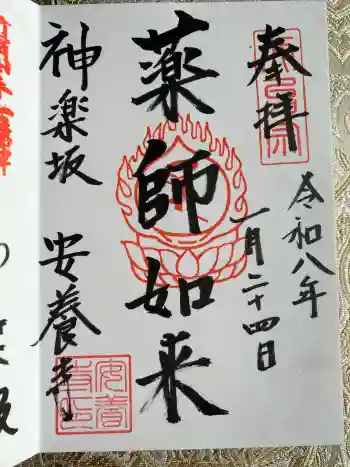 奉拝
令和八年
一月二十四日
薬師如来
神楽坂 安養寺